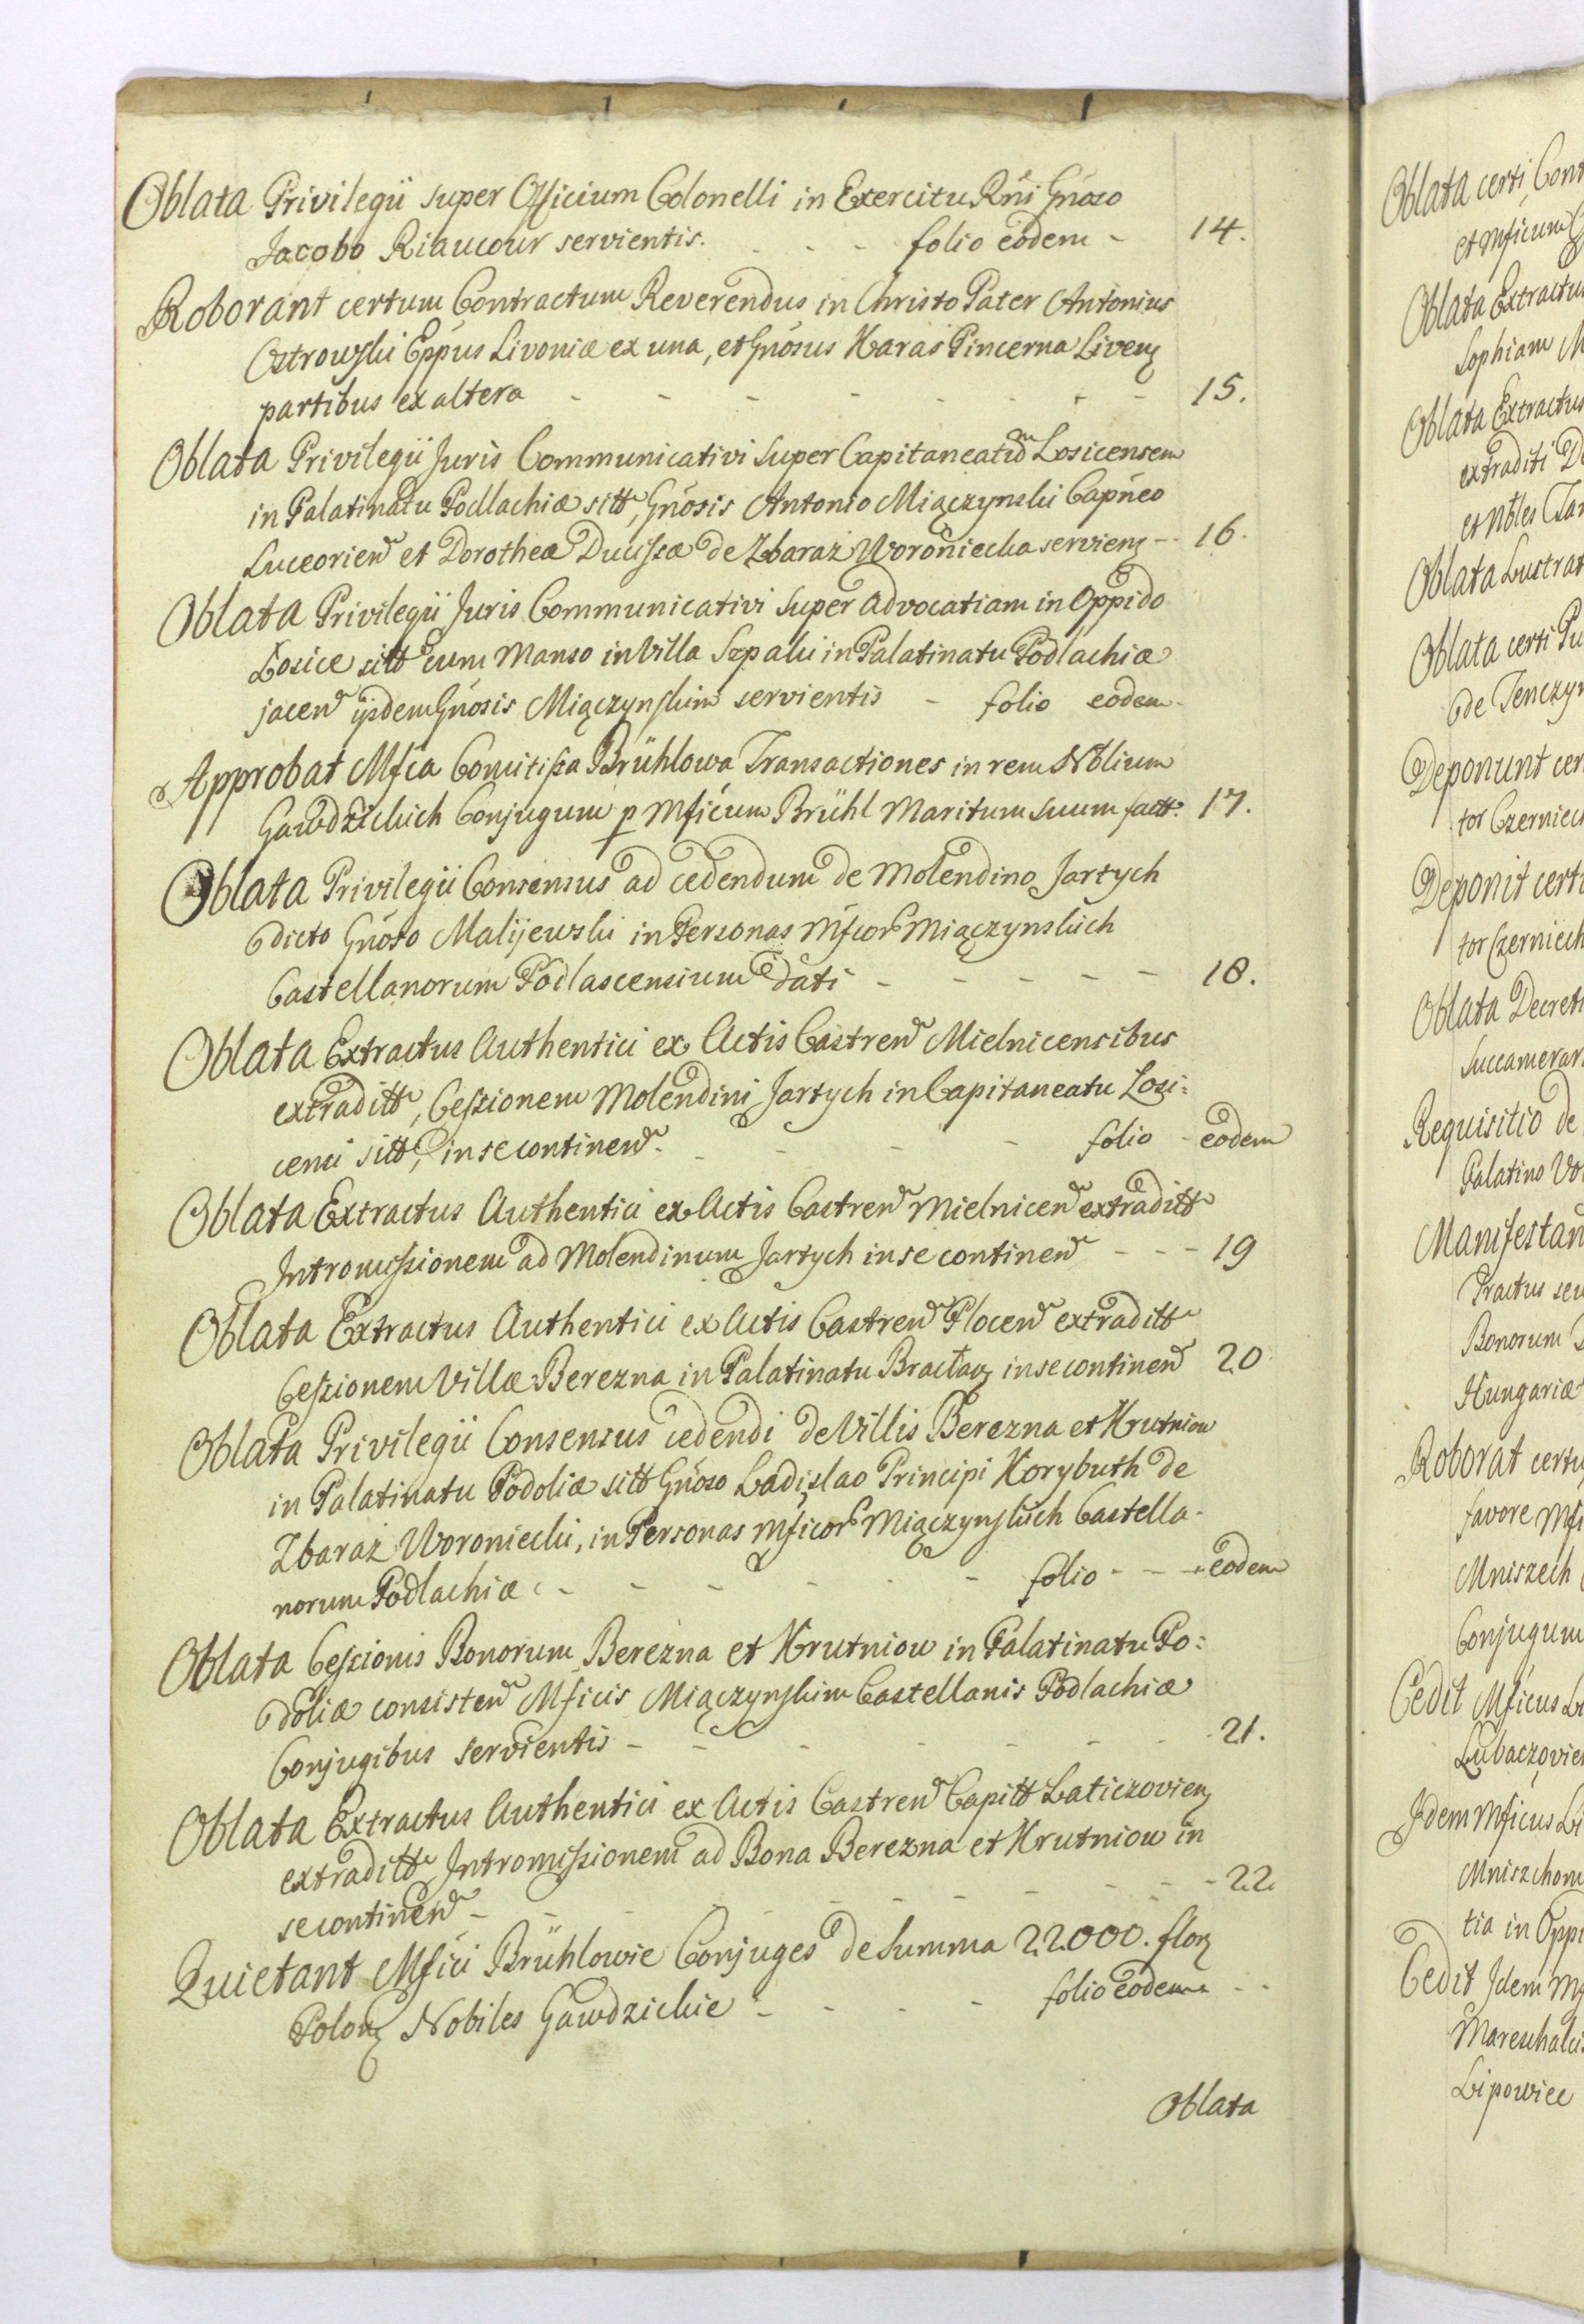 Oblata Privilegii super Officium Colonelli in Exercitu Rni Gnoso
Jacobo Riaucour servientis. - - - folio eodem - 14.
Roborant certum Contractum Reverendus in Christo Pater Antonius
Ostrowski Eppus Livoniæ ex una, et Gnosus Karas Pincerna Livenz
partibus ex altera - - - - - - - - 15.
Oblata Privilegii Juris Communicativi super Capitaneatum Losicensem
in Palatinatu Podlachiæ sitt, Gnosis Antonio Miączynski Capneo
Luceorien et Dorotheæ Ducissæ de Zbaraż Woroniecka servienz - - 16.
Oblata Privilegii Juris Communicativi super Advocatiam in Oppido
Łosice sitt cum Manso in Villa Szpaki in Palatinatu Podlachiæ
jacen ijsdem Gnosis Miączynskim servientis - folio eodem -
Approbat Mfca Comitissa Brühlowa Transactiones in rem Nblium
Gawdzickich Conjugum p Mficum Brühl Maritum suum factt. 17.
Oblata Privilegii Consensus ad cedendum de Molendino Jartych
dicto Gnoso Malijewski in Personas Mfcor Miączynskich
Castellanorum Podlascensium dati - - - - - 18.
Oblata Extractus Authentici ex Actis Castren Mielnicensibus
extraditt, Cessionem Molendini Jartych in Capitaneatu Losi-
censi sitt, in se continen. - - - - folio - eodem
Oblata Extractus Authentici ex Actis Castren Mielnicen extraditt
Intromissionem ad Molendinum Jartych in se continen - - - 19
Oblata Extractus Authentici ex Actis Castren Plocen extraditt
Cessionem Villæ Berezna in Palatinatu Bracłavz in se continen 20
Oblata Privilegii Consensus cedendi de Villis Berezna et Krutniow
in Palatinatu Podoliæ sitt Gnoso Ladislao Principi Korybuth de
Zbaraż Woroniecki, in Personas Mficor Miączynskich Castella-
norum Podlachiæ - - - - - - folio - - - eodem
Oblata Cessionis Bonorum Berezna et Krutniow in Palatinatu Po-
doliæ consisten Mficis Miączynskim Castellanis Podlachiæ
Conjugibus servientis - - - - - - - - 21.
Oblata Extractus Authentici ex Actis Castren Capitt Laticzovienz
extraditt Intromissionem ad Bona Berezna et Krutniow in
se continen - - - - - - - - - 22
Quietant Mfici Brühlowie Conjuges de Summa 22000. florz
Polonz Nobiles Gawdzickie - - - - folio eodem - -
Oblata
Oblata certi Cont
et Mficum
Oblata Extractu
Sophiam M
Oblata Extractus
extraditi De
et Nbles
Oblata Lustrat
Oblata certi
de Tenczyn
Deponunt cer
tor Czerniech
Deponit cert
tor Czerniech
Oblata Decreti
Succamerar
Requisitio de
Palatino Vo
Manifestan
Tractus seu
Bonorum
Hungariæ
Roborat certu
favore Mfi
Mniszech
Conjugum
Cedit Mficus Li
Lubaczovien
Idem Mficus Li
Mniszchom
tia in Oppi
Cedit Idem Mf
Mareschalci
Lipowiec